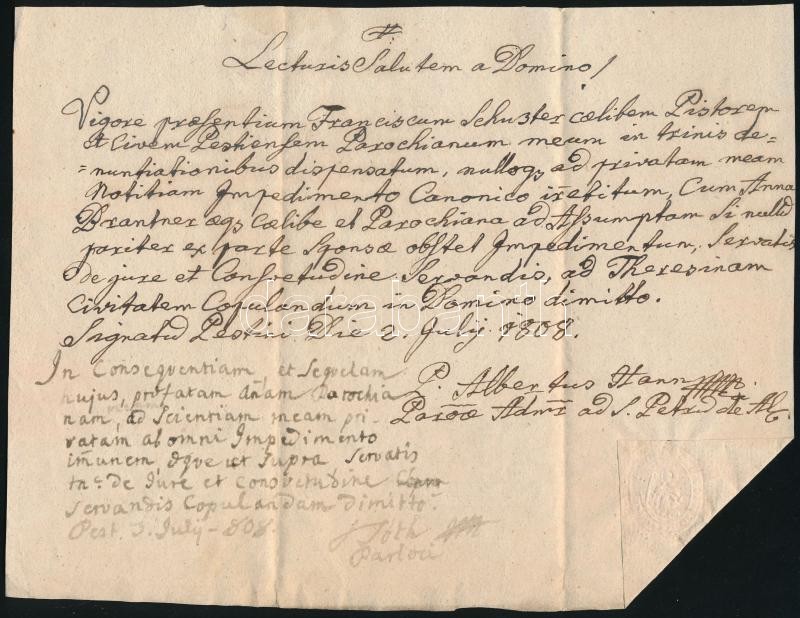 Lecturis Salutem a Domino!
Vigore præsentium Franciscum Schuster cælibem Pistorem
et Civem Pestiensem Parochianum meum in trinis de=
=nuntiationibus dispensatum, nulloq3 ad privatam meam
Notitiam Impedimento Canonico irretitum, Cum Anna
Brantner æq3 Cælibe et Parochiana ad Assumptam Si nullū
pariter ex parte Sponsæ obstet Impedimentum, Servatis
de jure et Consvetudine Servandis, ad Theresinam
Civitatem Copulandum in Domino dimitto.
Signatū Pestini Die 2. Julij 1808.
P. Albertus Hann
Paroæ Admr ad S. Petrū de Al.
In Consequentiam, et Sequelam
hujus, præfatam Annam Parochia
nam, ad Scientiam meam pri-
vatam ab omni Impedimento
immunem, æque ut Supra, Servatis
de Jure et Consvetudine
Servandis Copulandam dimitto.
Pest. 3. July 808.
Tóth
Parloci
darabanth